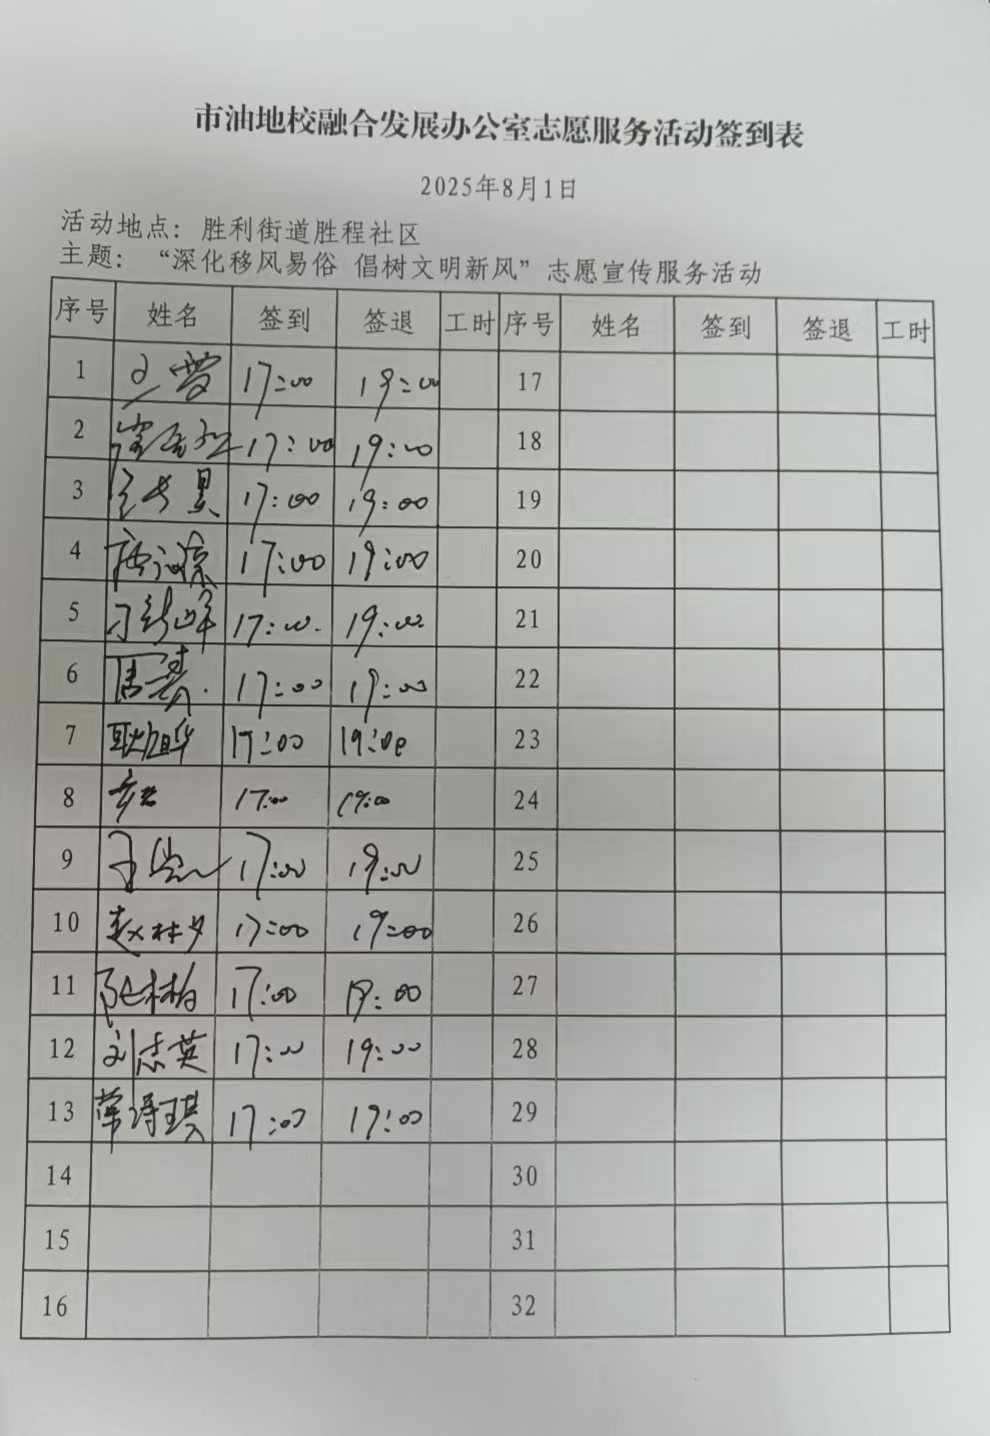 市油地校融合发展办公室志愿服务活动签到表
2025年8月1日
活动地点：胜利街道胜程社区
主题：“深化移风易俗 倡树文明新风”志愿宣传服务活动
序号 姓名 签到 签退 工时 序号 姓名 签到 签退 工时
1 17:00 19:00 17
2 17:00 19:00 18
3 17:00 19:00 19
4 17:00 19:00 20
5 17:00 19:00 21
6 17:00 19:00 22
7 耿旭华 17:00 19:00 23
8 17:00 19:00 24
9 17:00 19:00 25
10 赵林夕 17:00 19:00 26
11 17:00 19:00 27
12 刘志英 17:00 19:00 28
13 常诗琪 17:00 19:00 29
14 30
15 31
16 32